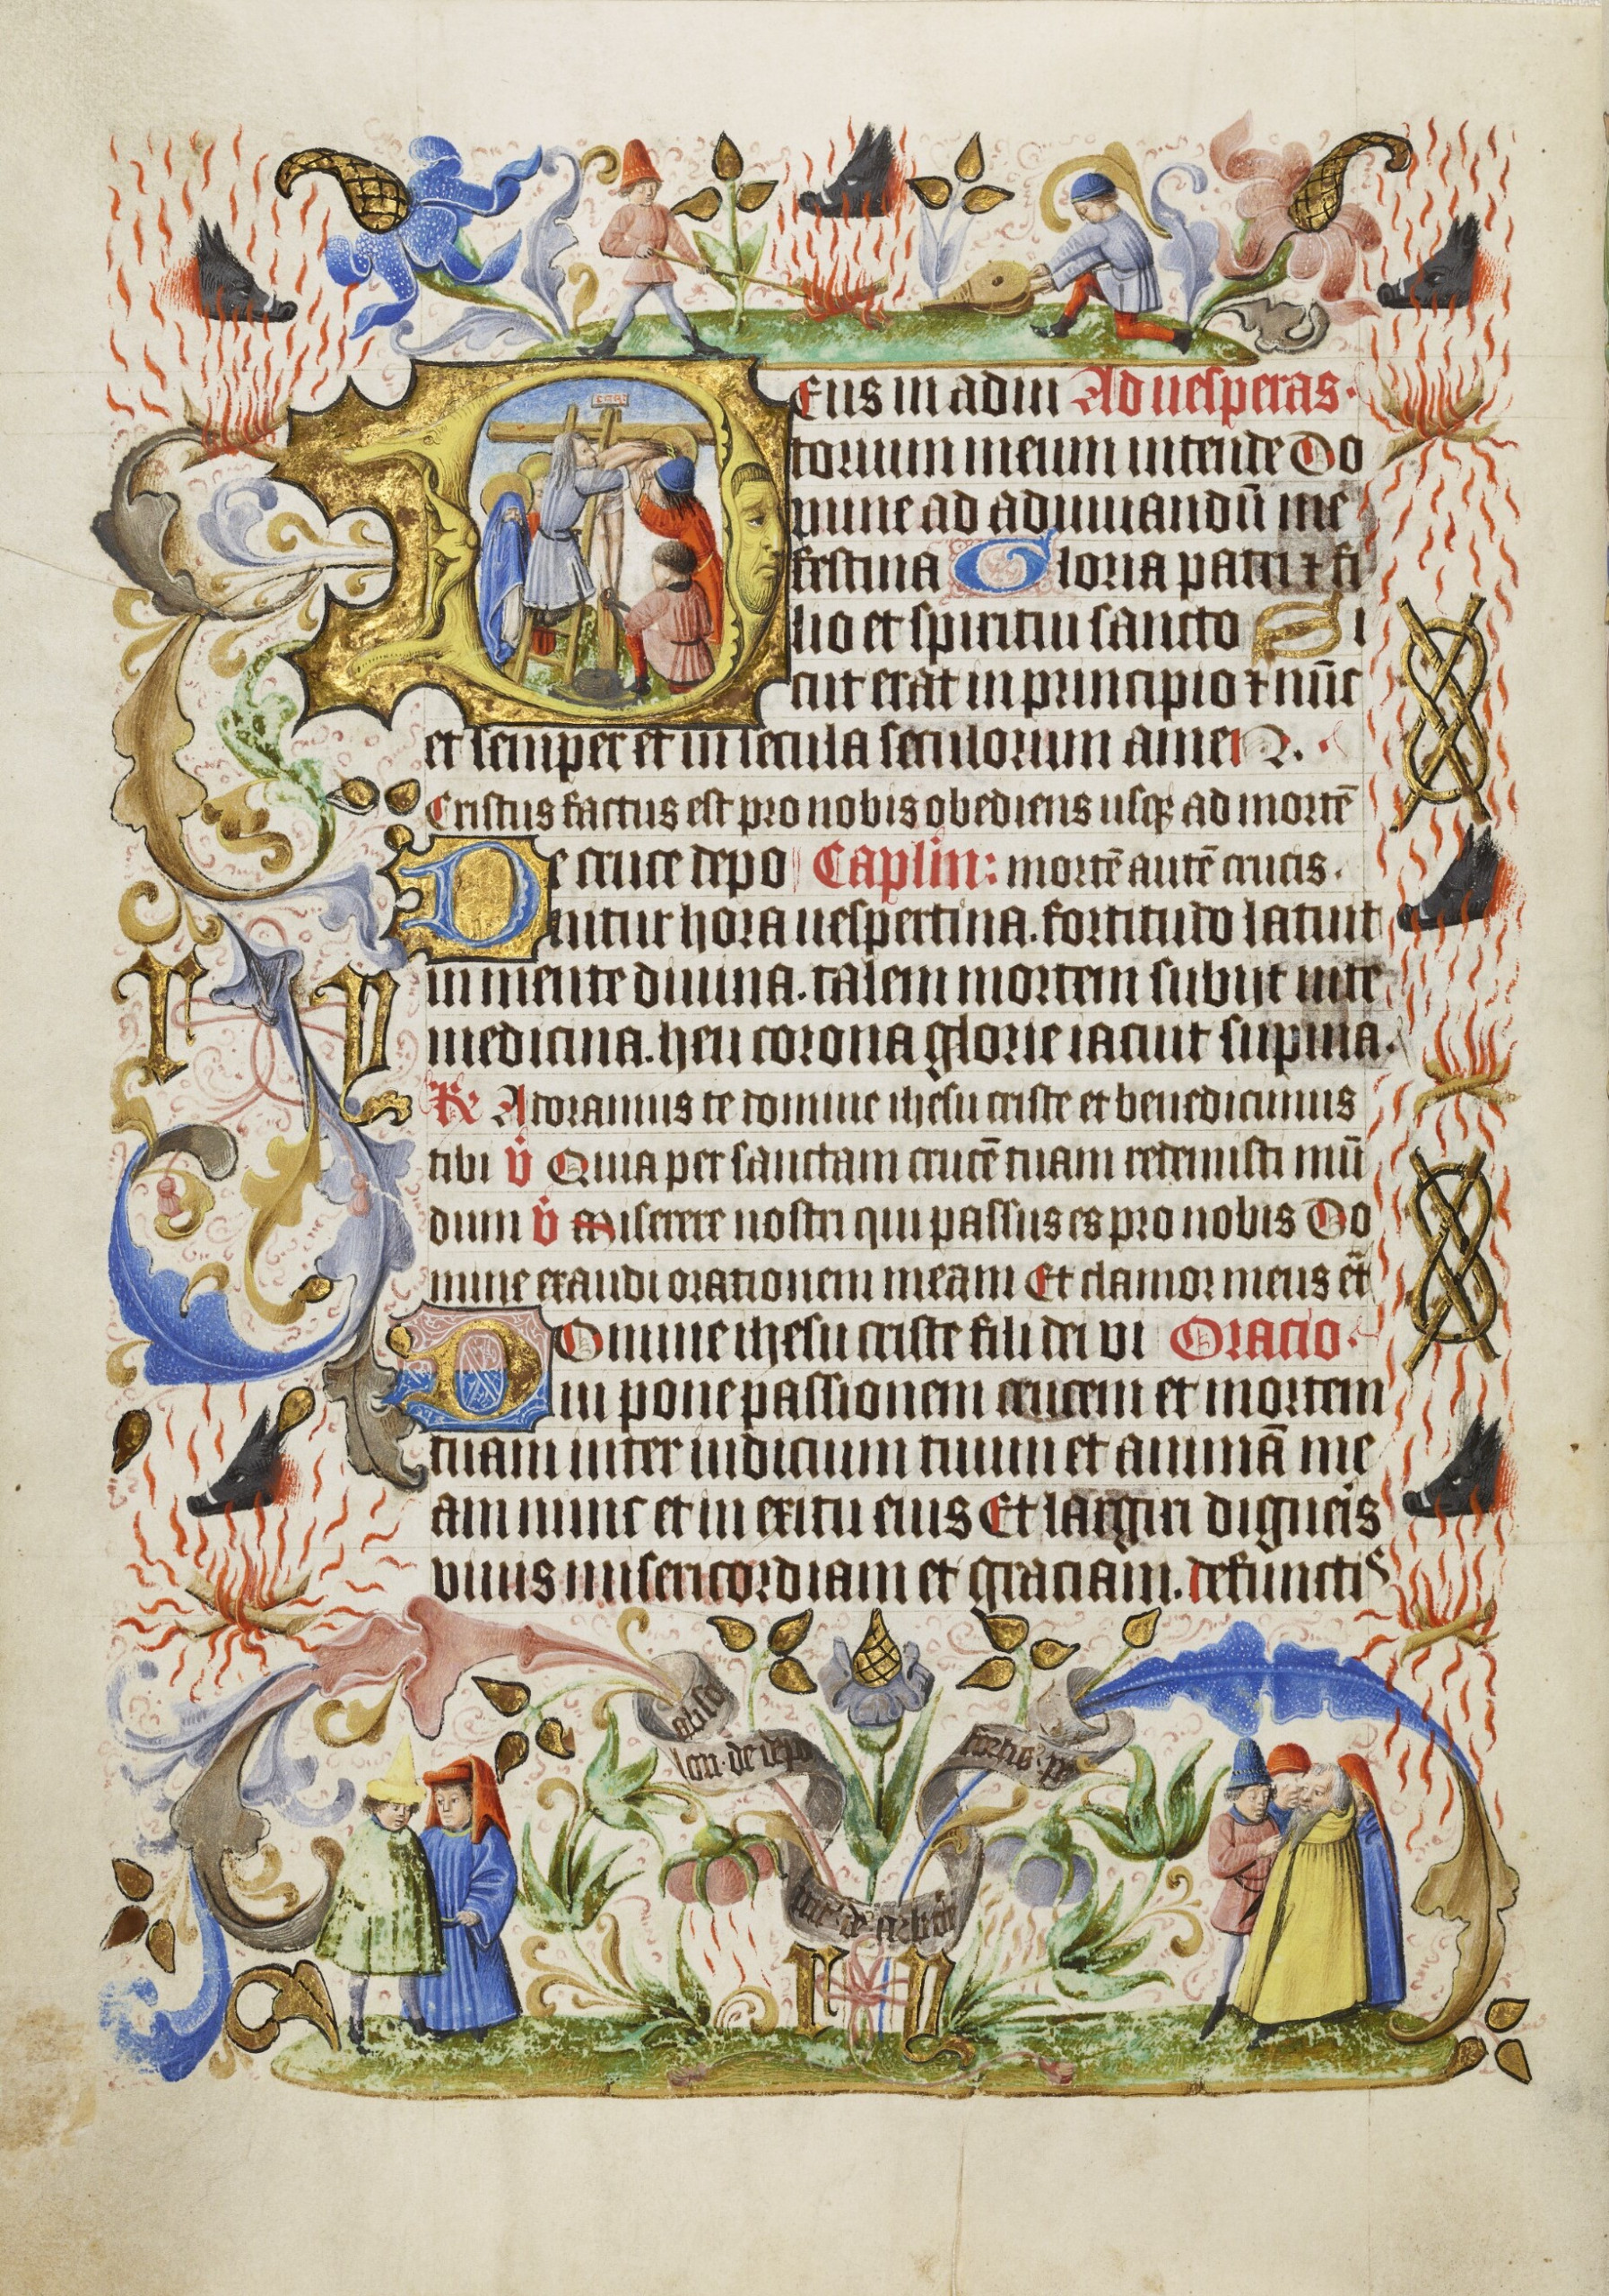 Deus in adiu Ad uesperas.
torium meum intende Do
mine ad adiuuandū me
festina Gloria patri ⁊ fi
lio et spiritui sancto Si
cut erat in principio ⁊ nūc
et semper et in secula seculorum amen.
Cristus factus est pro nobis obediens usqꝫ ad mortē
De cruce depo Capl'm: mortē autē crucis.
nitur hora uespertina. fortitudo latuit
in mente diuina. talem mortem subijt uite
medicina. heu corona glorie iacuit supina.
R Adoramus te domine ihesu criste et benedicimus
tibi v̇ Quia per sanctam crucē tuam redemisti mū
dum v̇ Miserere nostri qui passus es pro nobis Do
mine exaudi orationem meam Et clamor meus et̄
DOmine ihesu criste fili dei vi Oracio.
ui pone passionem crucem et mortem
tuam inter iudicium tuum et animā me
am nunc et in exitu eius Et largiri digneris
viuis misericordiam et graciam. defunctis